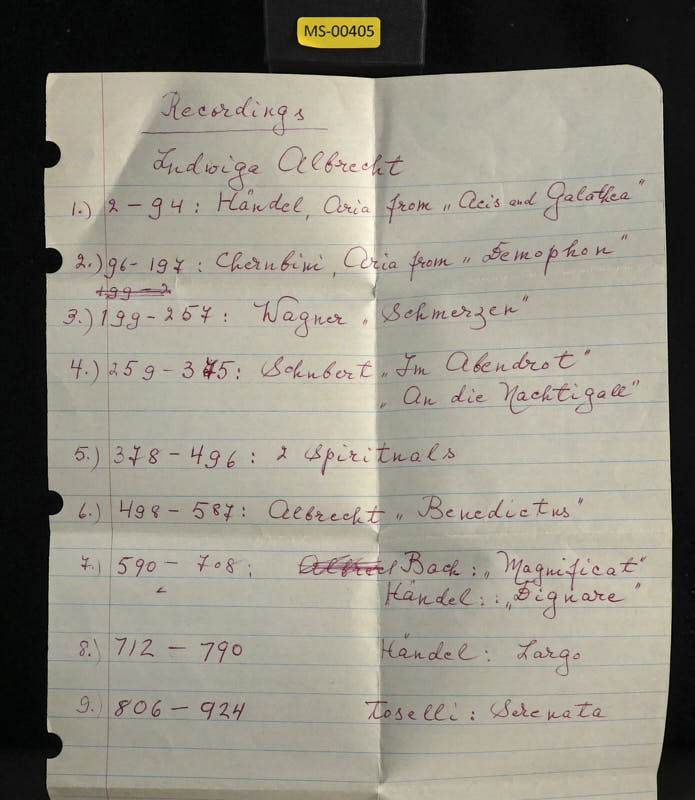 MS-00405
Recordings
Ludwiga Albrecht
1.) 2 – 94 : Händel, Aria from „Acis and Galathea"
2.) 96 – 197 : Cherubini, Aria from „Demophon"
199 – 2
3.) 199 – 257 : Wagner „Schmerzen"
4.) 259 – 375 : Schubert „Im Abendrot"
„An die Nachtigall"
5.) 378 – 496 : 2 Spirituals
6.) 498 – 587 : Albrecht „Benedictus"
7.) 590 – 708 : Albrecl Bach : „Magnificat"
Händel : „Dignare"
8.) 712 – 790 Händel : Largo
9.) 806 – 924 Toselli : Serenata